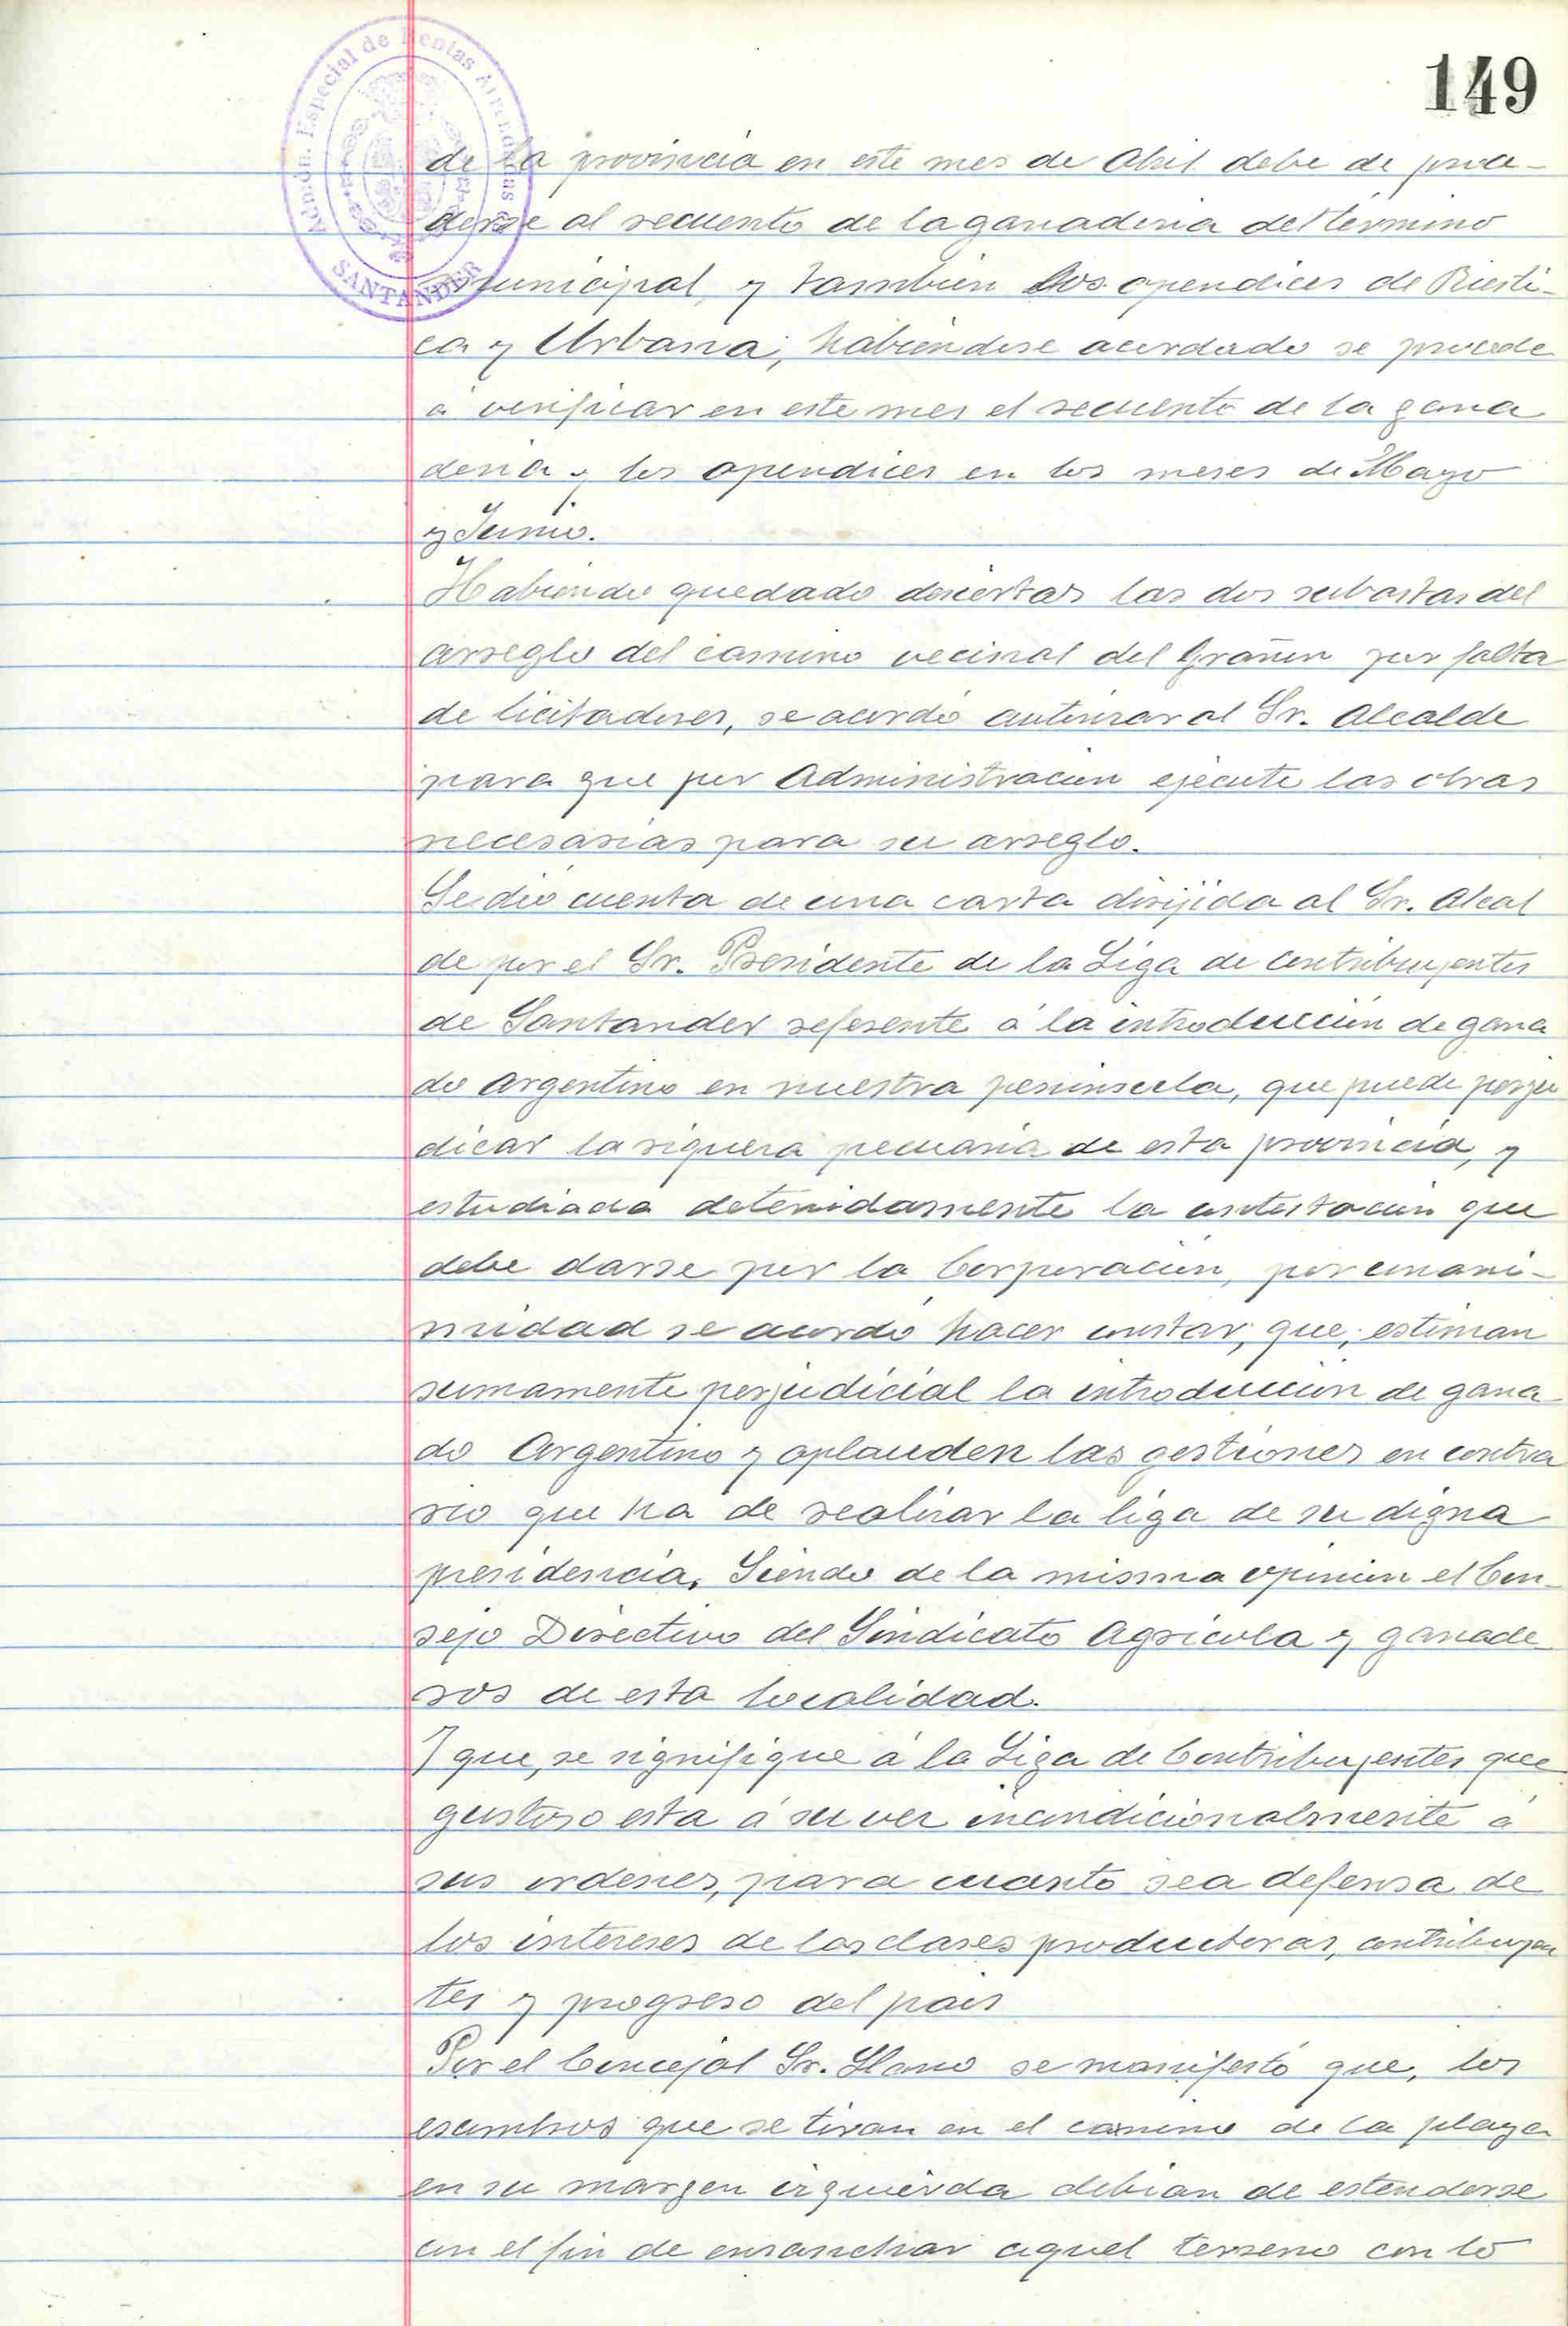 149
Admón. Especial de Rentas Arrendadas de
SANTANDER
de la provincia en este mes de Abril debe de proce-
derse al recuento de la ganaderia del termino
municipal y tambien los apendices de Rústi-
ca y Urbana; habiendose acordado se procede
a verificar en este mes el recuento de la gana
deria y los apendices en los meses de Mayo
y Junio.
Habiendo quedado desiertas las dos subastas del
arreglo del camino vecinal del por falta
de licitadores, se acordó autorizar al Sr. Alcalde
para que por Administración ejecute las obras
necesarias para su arreglo.
Se dió cuenta de una carta dirijida al Sr. Alcal
de por el Sr. Presidente de la Liga de contribuyentes
de Santander referente á la introducción de gana
do Argentino en nuestra peninsula, que puede perju
dicar la riqueza pecuaria de esta provincia, y
estudiada detenidamente la contestación que
debe darse por la Corporación, por unani-
midad se acordó hacer constar, que, estiman
sumamente perjudicial la introducción de gana
do Argentino y aplauden las gestiones en contra
rio que ha de realizar la liga de su digna
presidencia. Siendo de la misma opinion el Con-
sejo Directivo del Sindicato Agricola y ganade
ros de esta localidad.
Y que, se signifique á la Liga de Contribuyentes que
gustoso esta á su vez incondicionalmente á
sus ordenes, para cuanto sea defensa de
los intereses de las clases productoras, contribuyen
tes y progreso del pais
Por el Concejal Sr. Llano se manifestó que, los
escombros que se tiran en el camino de la playa
en su margen izquierda debian de estenderse
con el fin de ensanchar aquel terreno con lo